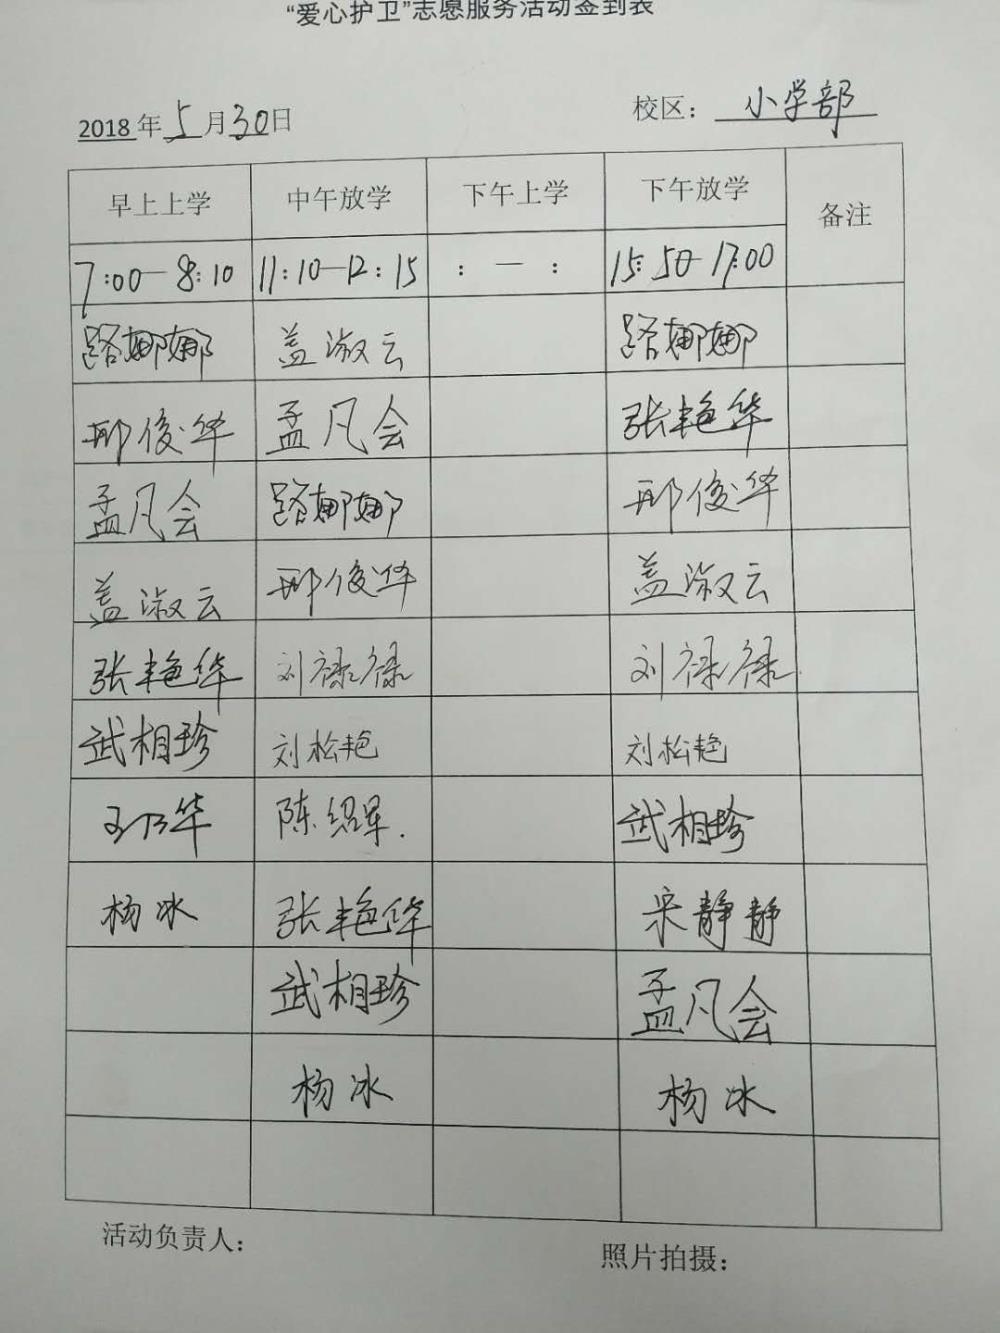 “爱心护卫”志愿服务活动签到表
2018年5月30日 校区：小学部
早上上学 中午放学 下午上学 下午放学 备注
7:00—8:10 11:10—12:15 : — : 15:50-17:00
路娜娜 盖淑云 路娜娜
邢俊华 孟凡会 张艳华
孟凡会 路娜娜 邢俊华
盖淑云 邢俊华 盖淑云
张艳华 刘禄禄 刘禄禄
武相珍 刘松艳 刘松艳
王乃华 陈绍军. 武相珍
杨冰 张艳华 宋静静
武相珍 孟凡会
杨冰 杨冰
活动负责人： 照片拍摄：